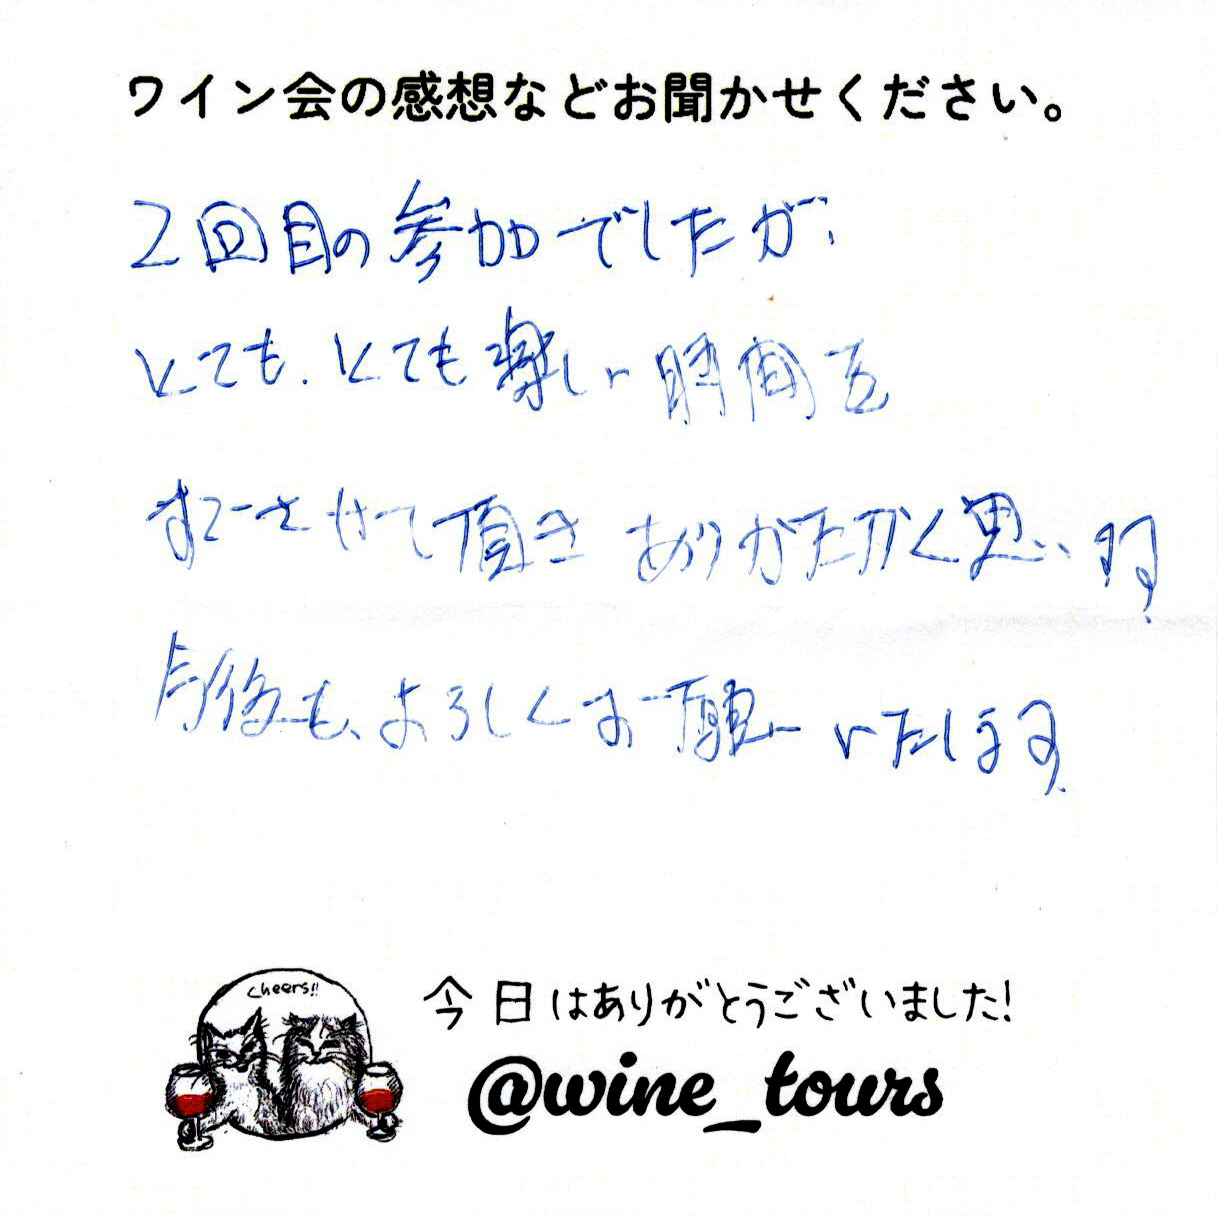 ワイン会の感想などお聞かせください。
2回目の参加でしたが、
とても、とても楽しい時間を
すごさせて頂きありがたく思います。
今後も、よろしくお願いいたします。
cheers!!
今日はありがとうございました!
@wine_tours